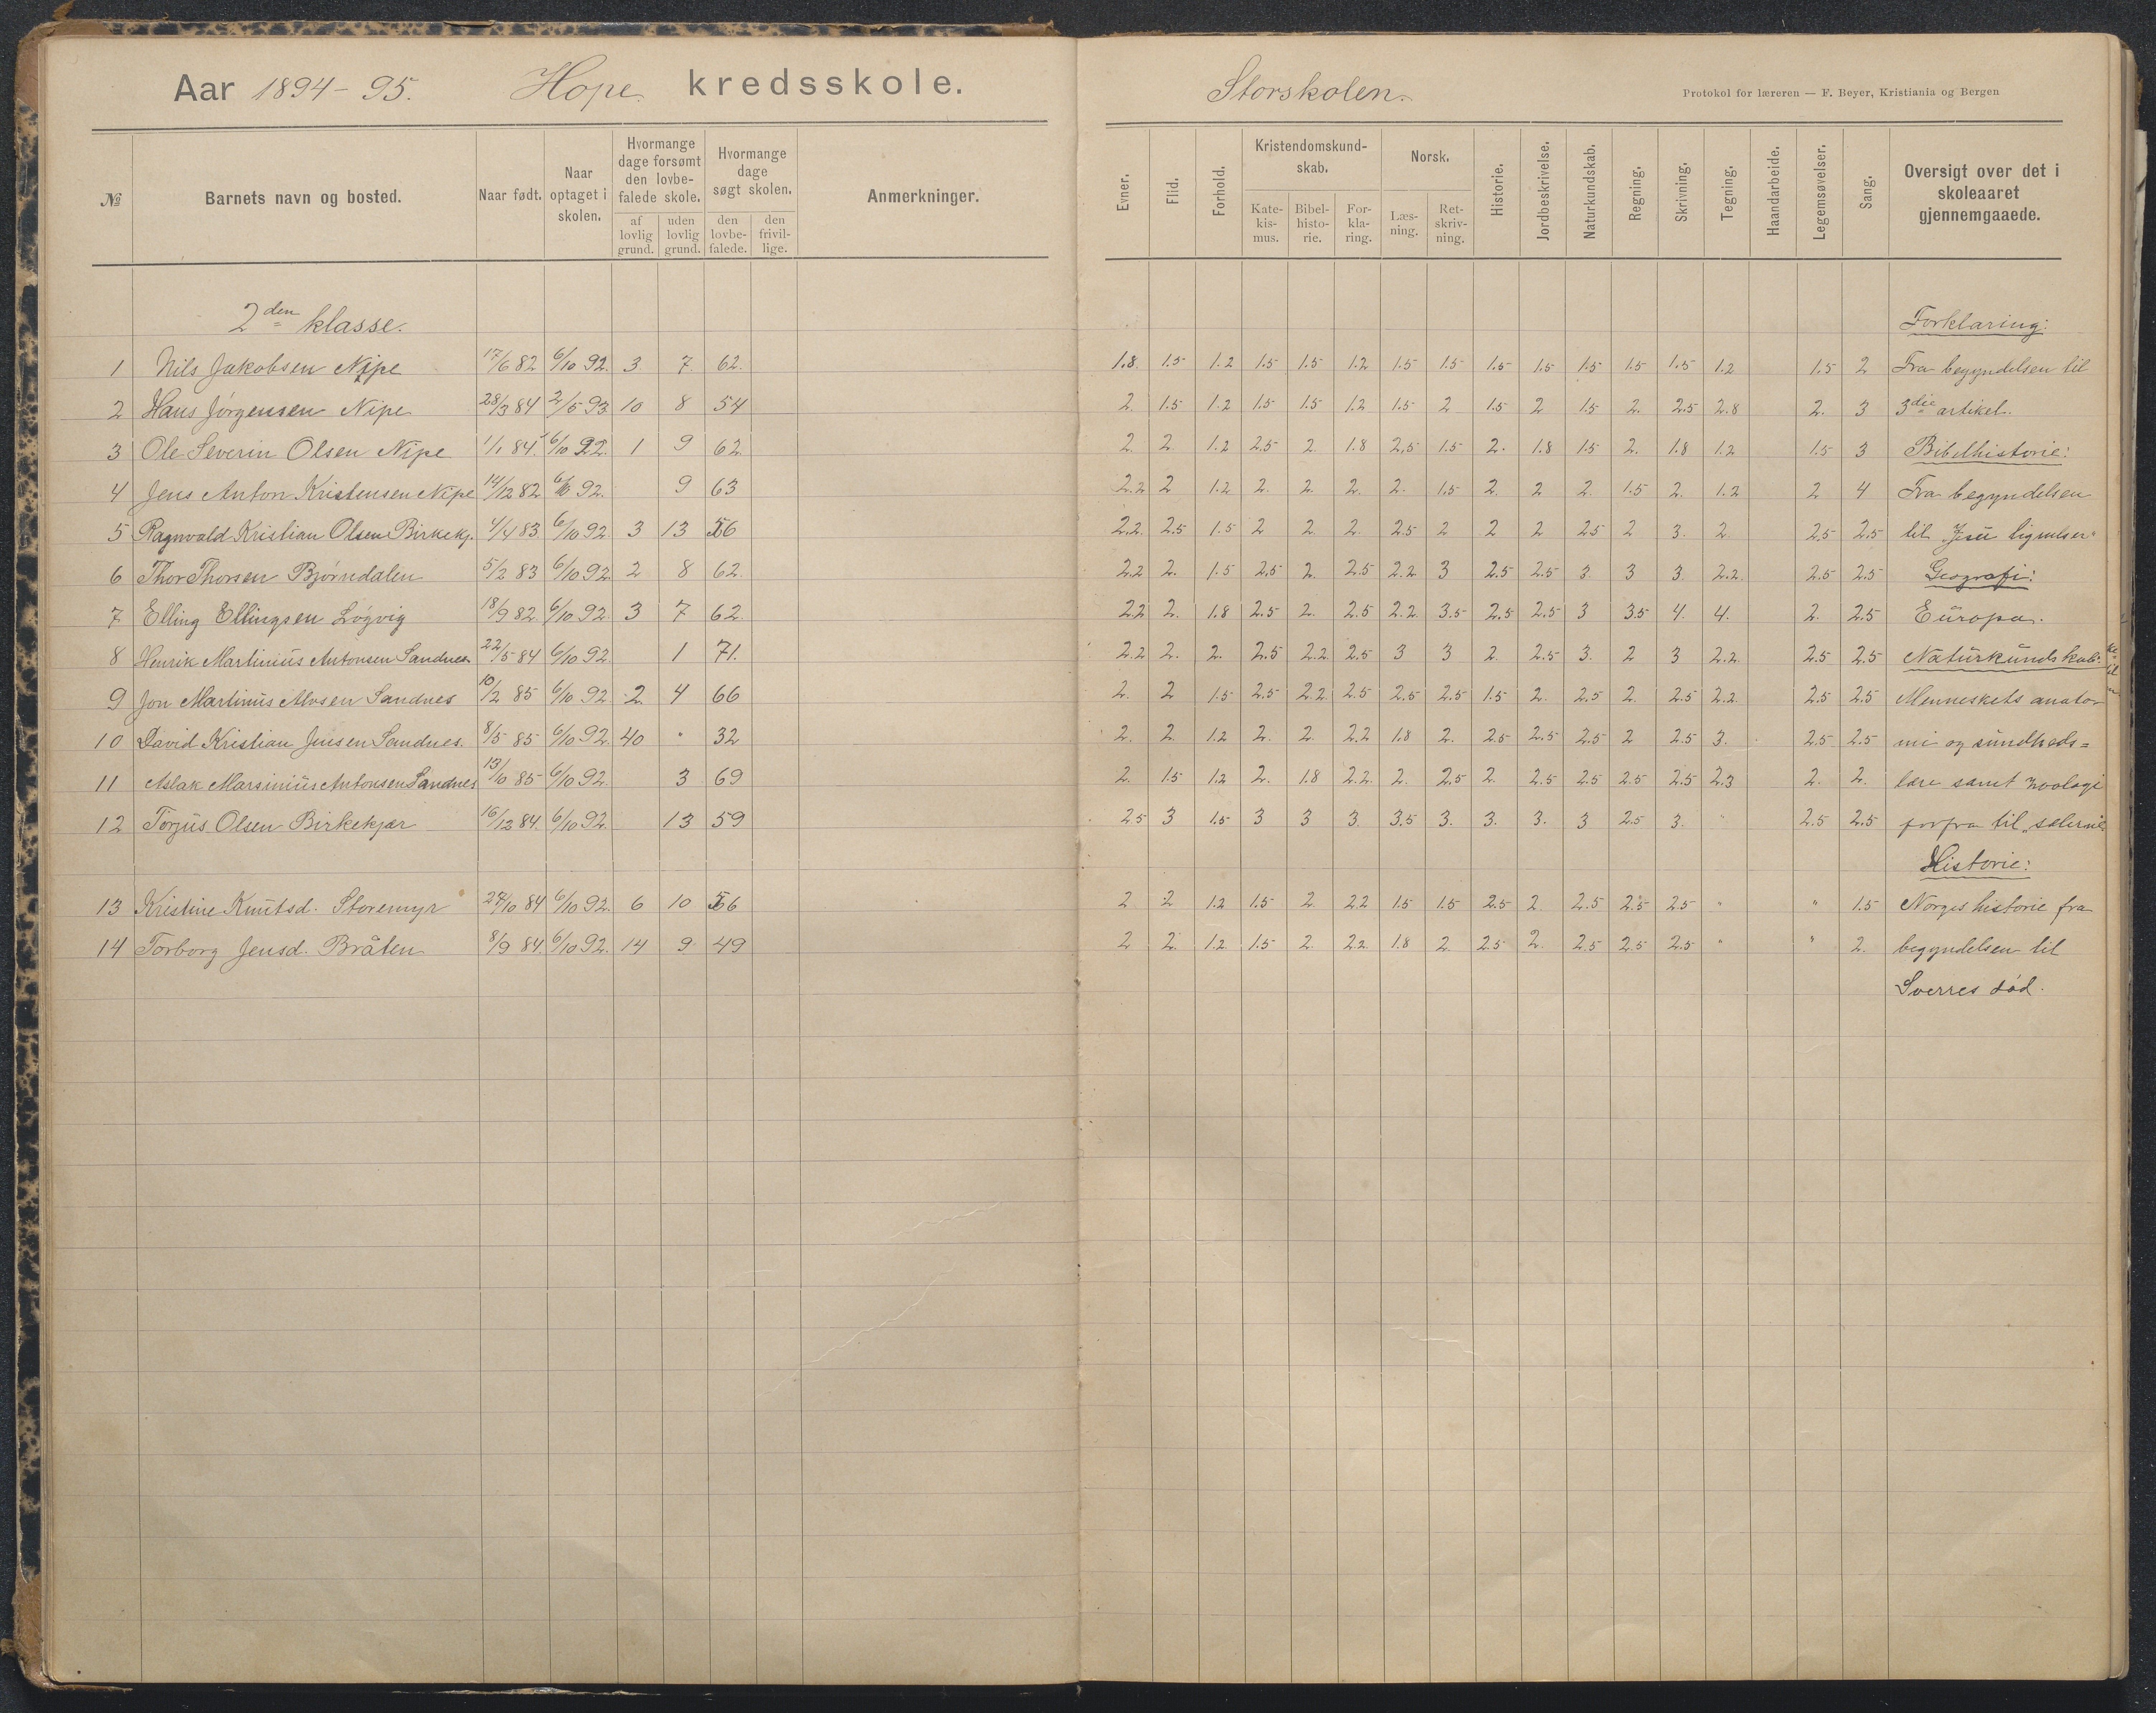 Aar 1894-95. Hope kredsskole.
Storskolen.
Protokol for læreren — F. Beyer, Kristiania og Bergen
№ | Barnets navn og bosted. | Naar født. | Naar optaget i skolen. | Hvormange dage forsømt den lovbefalede skole. af lovlig grund. | uden lovlig grund. | Hvormange dage søgt skolen. den lovbefalede. | den frivillige. | Anmerkninger.
Evner. | Flid. | Forhold. | Kristendomskundskab. Katekismus. | Bibelhistorie. | Forklaring. | Norsk. Læsning. | Retskrivning. | Historie. | Jordbeskrivelse. | Naturkundskab. | Regning. | Skrivning. | Tegning. | Haandarbeide. | Legemsøvelser. | Sang. | Oversigt over det i skoleaaret gjennemgaaede.
2den klasse. Forklaring:
1 Nils Jakobsen Nipe 17/6 82 6/10 92. 3 7. 62. 1.8 1.5 1.2 1.5 1.5 1.2 1.5 1.5 1.5 1.5 1.5 1.5 1.5 1.2 1.5 2 Fra begyndelsen til
2 Hans Jørgensen Nipe 28/3 84 2/5 93 10 8 54 2. 1.5 1.2 1.5 1.5 1.2 1.5 2 1.5 2 1.5 2. 2.5 2.8 2. 3 3die artikel.
3 Ole Severin Olsen Nipe 1/1 84. 6/10 92. 1 9 62. 2. 2. 1.2 2.5 2. 1.8 2,5 1.5 2. 1.8 1.5 2. 1.8 1.2 1.5 3 Bibelhistorie:
4 Jens Anton Kristensen Nipe 14/12 82 6/10 92. 9 63 2.2 2 1.2 2. 2. 2. 2. 1.5 2. 2 2. 1.5 2. 1.2 2 4 Fra begyndelsen
5 Ragnvald Kristian Olsen Birkekj. 4/4 83 6/10 92. 3 13 56 2.2. 2.5 1.5 2 2. 2. 2.5 2 2 2 2.5 2 3. 2. 2.5 2.5 til "Jesu lignelser"
6 Thor Thorsen Bjørndalen 5/2 83 6/10 92. 2 8 62. 2.2 2. 1.5 2.5 2. 2.5 2.2 3 2.5 2.5 3. 3 3. 2.2. 2.5 2.5 Geografi:
7 Elling Ellingsen Løgvig 18/9 82. 6/10 92. 3 7 62. 2.2 2. 1.8 2.5 2. 2.5 2.2. 3.5 2.5 2.5 3 3.5 4. 4. 2. 2.5 Europa.
8 Henrik Martinius Antonsen Sandnes 22/5 84 6/10 92. 1 71. 2.2 2. 2. 2.5 2.2 2.5 3 3 2. 2.5 3. 2 3 2.2. 2.5 2.5 Naturkundskab:
9 Jon Martinius Alvsen Sandnes 10/2 85 6/10 92. 2. 4 66 2. 2 1.5 2.5 2.2 2.5 2.5 2.5 1.5 2. 2.5 2. 2.5 2.2. 2.5 2.5 Menneskets anato-
10 David Kristian Jensen Sandnes. 8/5 85 6/10 92. 40 " 32 2. 2. 1.2 2. 2. 2.2 1.8 2. 2.5 2.5 2.5 2 2.5 3. 2.5 2.5 mi og sundheds=
11 Aslak Marsinius Antonsen Sandnes 13/10 85 6/10 92. 3 69 2. 1.5 1.2 2. 1.8 2.2. 2. 2.5 2. 2.5 2.5 2.5 2.5 2.3 2. 2. lære samt zoologi
12 Torjus Olsen Birkekjær 16/12 84. 6/10 92. 13 59 2.5 3 1.5 3 3 3. 3.5 3. 3. 3. 3 2.5 3. " 2.5 2.5 forfra til
Historie:
13 Kristine Knutsd. Storemyr 27/10 84 6/10 92. 6 10 56 2 2 1.2 1.5 2. 2.2 1.5 1.5 2.5 2 2.5 2.5 2.5 " " 1.5 Norges historie fra
14 Torborg Jensd. Bråten 8/9 84. 6/10 92. 14 9 49 2 2. 1.2 1.5 2. 2.2. 1.8 2 2.5 2. 2.5 2.5 2.5 " " 2. begyndelsen til
Sverres død.